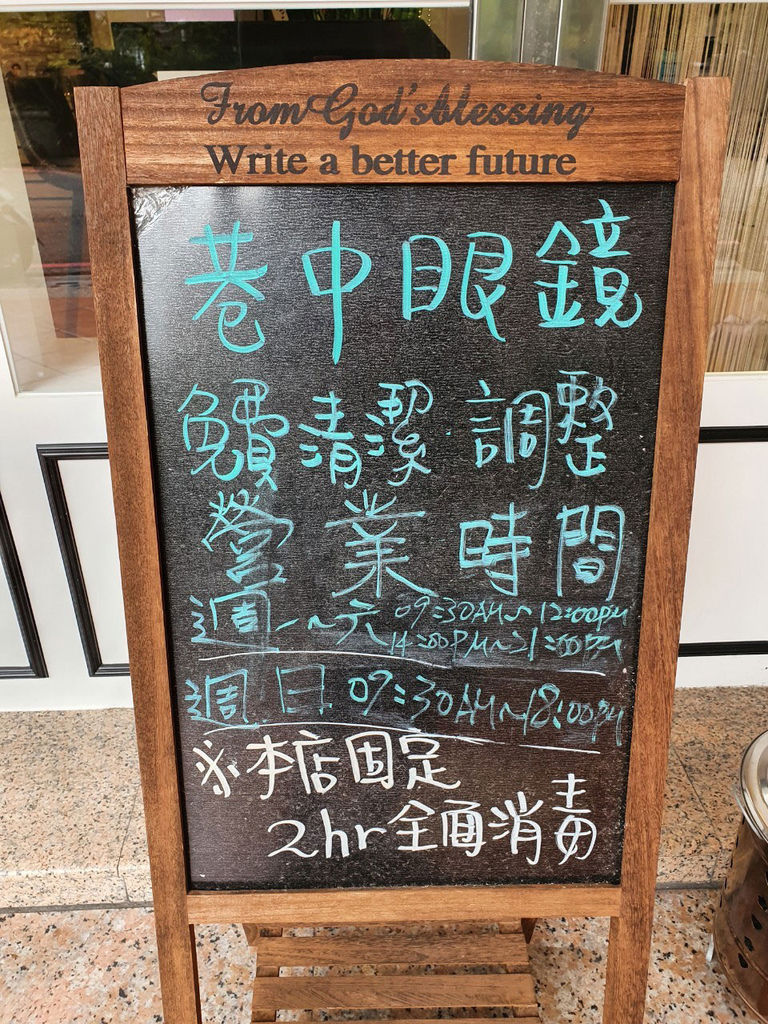 From God's blessing
Write a better future
巷中眼鏡
鱝清潔.調整
營業時間
週一~六 09:30AM~12:00PM
14:00PM~21:00PM
週日 09:30AM~18:00PM
※本店固定
2hr全面消毒